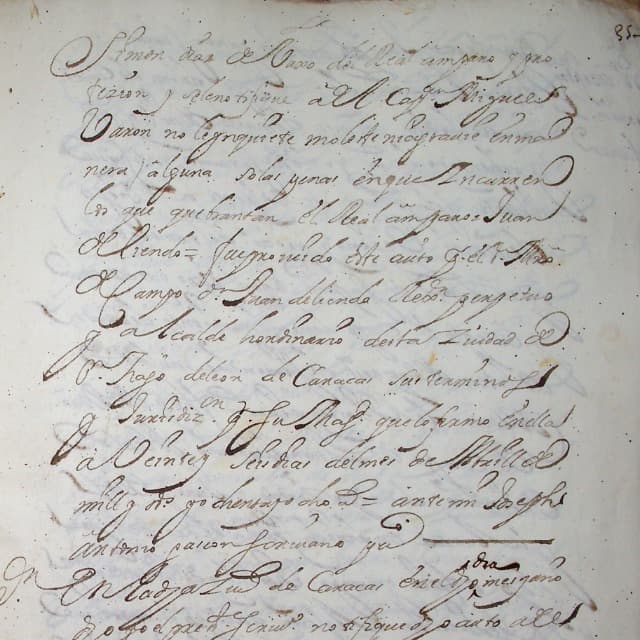 25
Simon dias de Uso del Real amparo y pro
tecion y se le notifique a el Capn Miguel
Varon no le ynquiete moleste ni agrauie en ma
nera alguna so las penas en que Yncurren
los que quebrantan el Real amparo = Juan
de Liendo = fue proueido este auto Pr. el Sr. Mro
de Campo Dn Juan de liendo Rexr. perpetuo
y Alcalde hordinario desta Ziudad de
S Tiago de leon de Caracas sus terminos
y Juridizn Pr. Su Magd que lo firmo en ella
a Veinte y seis dias del mes de Abrill de
mill y ss. y ochenta y ocho as = ante mi Joseph
Antonio pascon scriuano puco
En la dha ziud de Caracas en el dho dia mes y año
el preste scriuo notifique dho auto a el